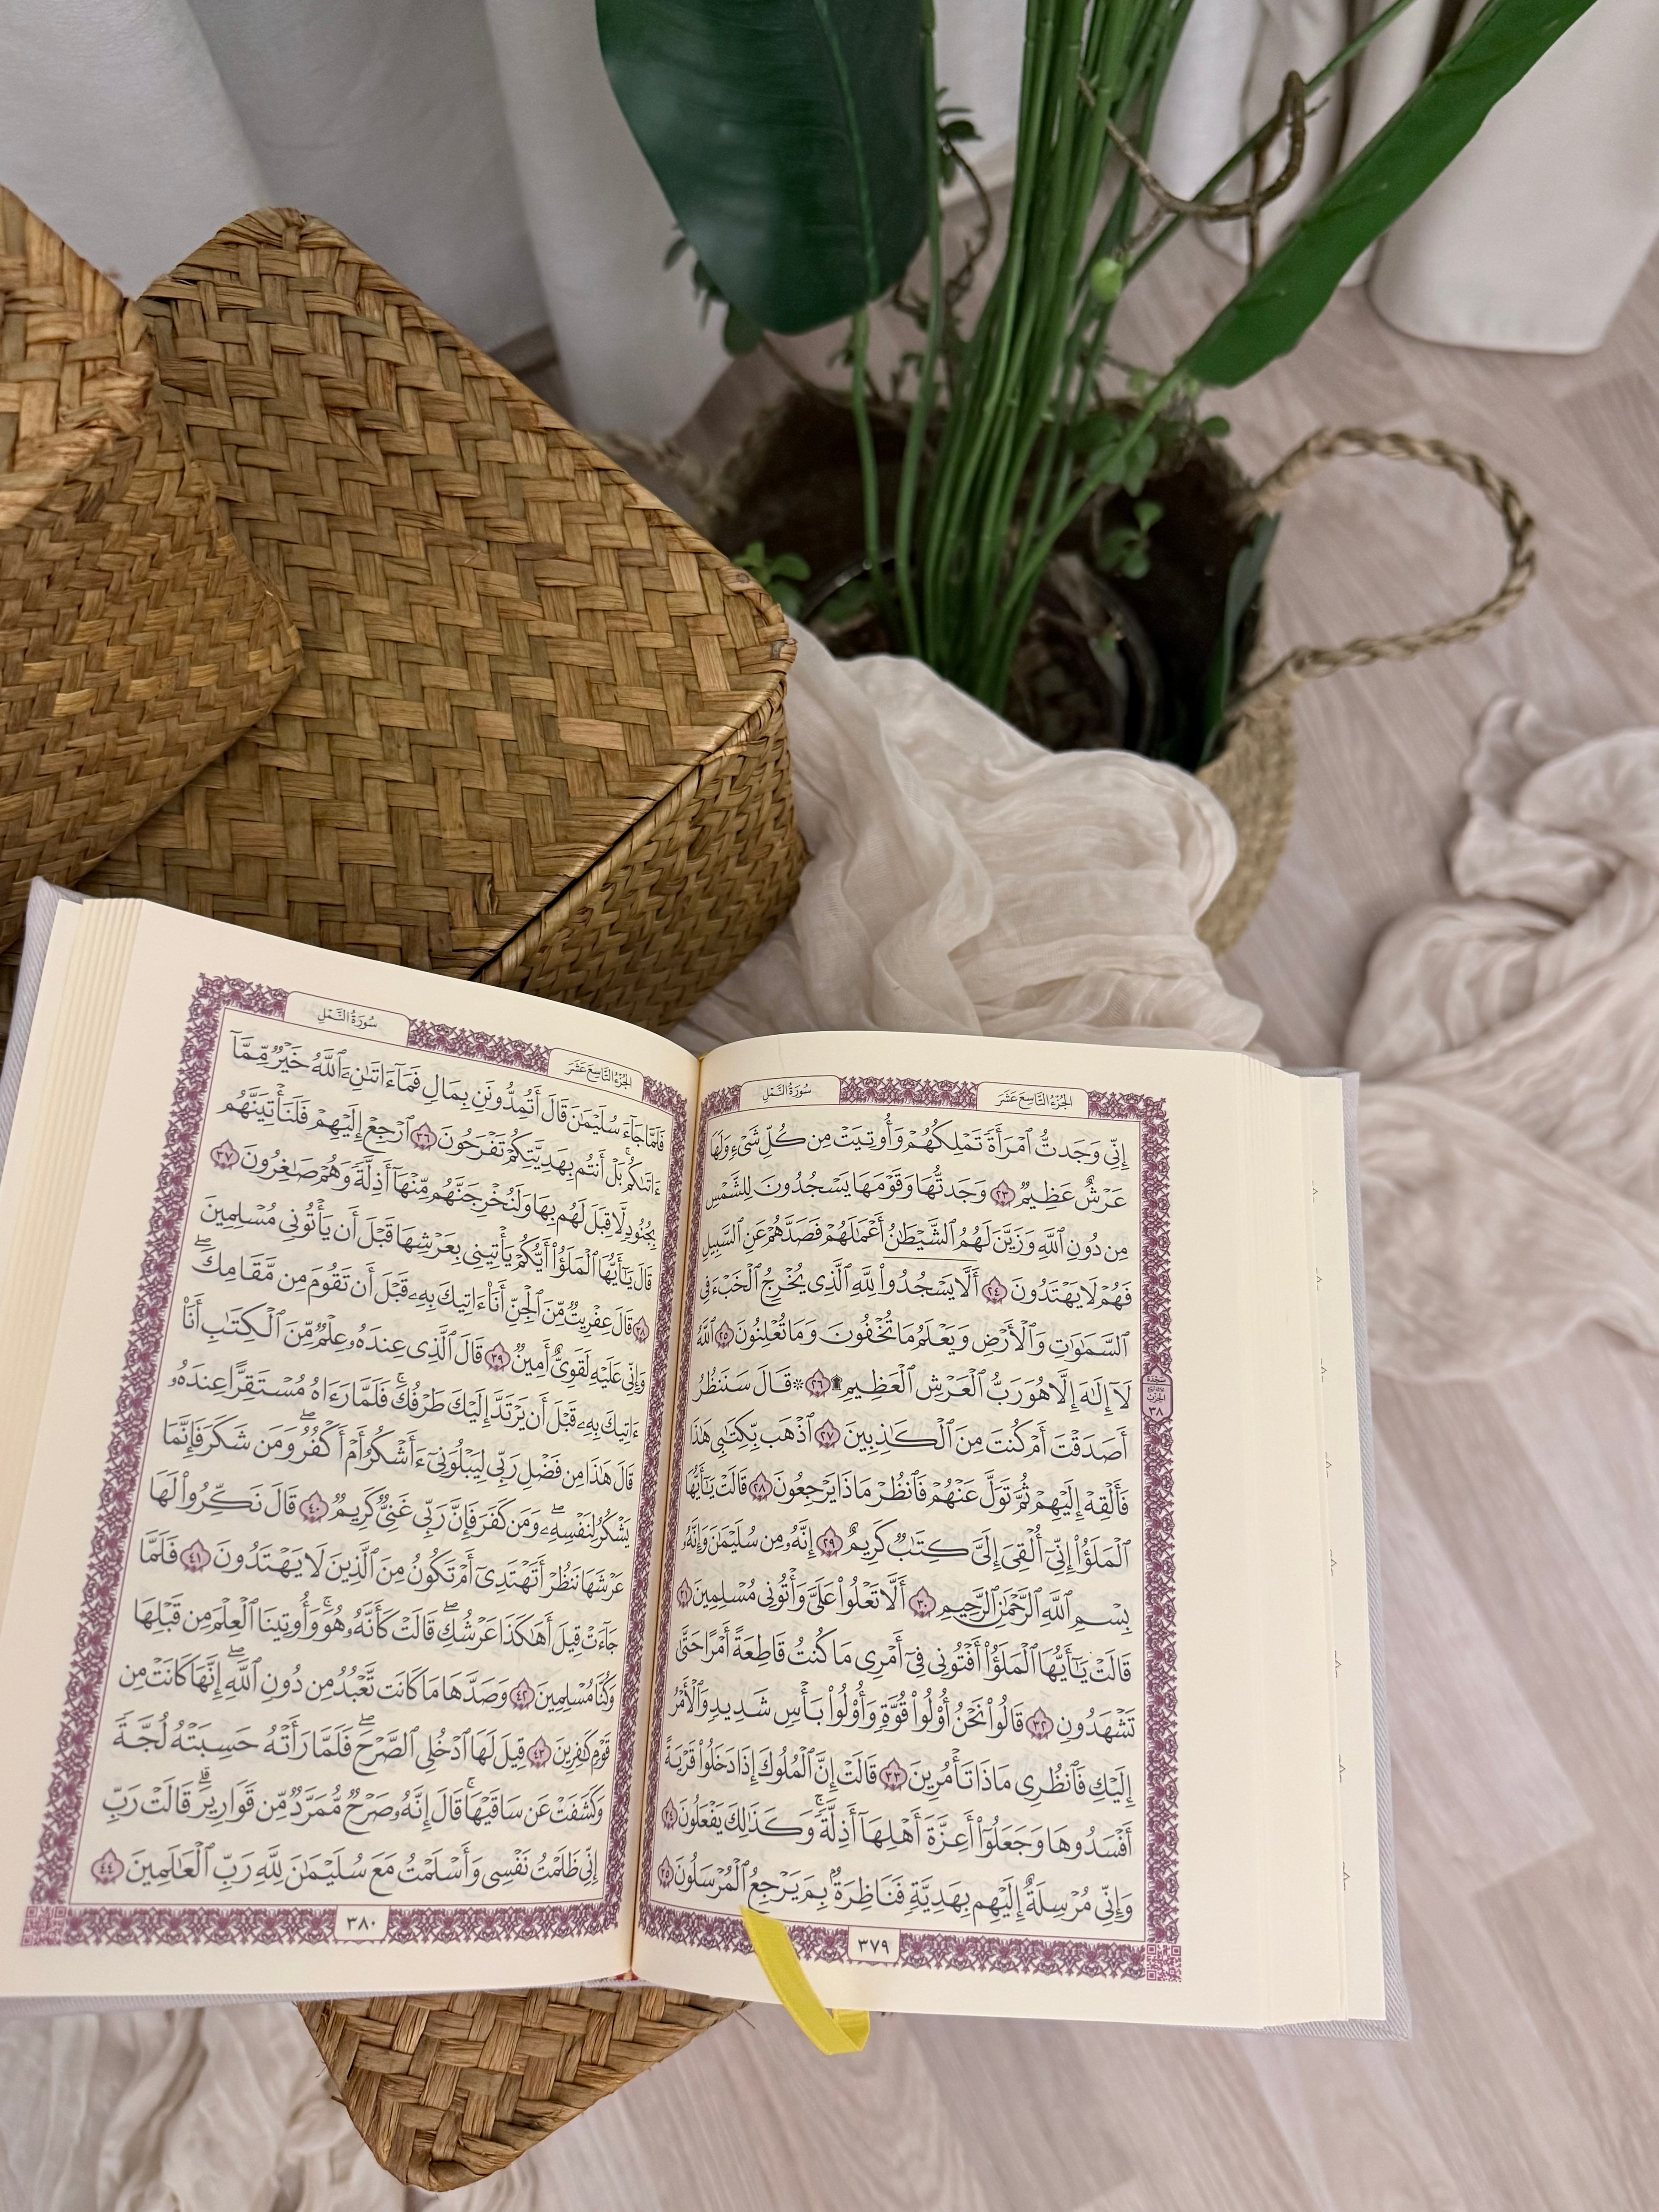 الجُزْءُ التَّاسِعَ عَشَرَ
سُورَةُ النَّمْلِ
إِنِّى وَجَدتُّ ٱمْرَأَةً تَمْلِكُهُمْ وَأُوتِيَتْ مِن كُلِّ شَىْءٍ وَلَهَا
عَرْشٌ عَظِيمٌ ٢٣ وَجَدتُّهَا وَقَوْمَهَا يَسْجُدُونَ لِلشَّمْسِ
مِن دُونِ ٱللَّهِ وَزَيَّنَ لَهُمُ ٱلشَّيْطَٰنُ أَعْمَٰلَهُمْ فَصَدَّهُمْ عَنِ ٱلسَّبِيلِ
فَهُمْ لَا يَهْتَدُونَ ٢٤ أَلَّا يَسْجُدُوا۟ لِلَّهِ ٱلَّذِى يُخْرِجُ ٱلْخَبْءَ فِى
ٱلسَّمَٰوَٰتِ وَٱلْأَرْضِ وَيَعْلَمُ مَا تُخْفُونَ وَمَا تُعْلِنُونَ ٢٥ ٱللَّهُ
لَآ إِلَٰهَ إِلَّا هُوَ رَبُّ ٱلْعَرْشِ ٱلْعَظِيمِ ۩ ٢٦ ۞ قَالَ سَنَنظُرُ
أَصَدَقْتَ أَمْ كُنتَ مِنَ ٱلْكَٰذِبِينَ ٢٧ ٱذْهَب بِّكِتَٰبِى هَٰذَا
فَأَلْقِهْ إِلَيْهِمْ ثُمَّ تَوَلَّ عَنْهُمْ فَٱنظُرْ مَاذَا يَرْجِعُونَ ٢٨ قَالَتْ يَٰٓأَيُّهَا
ٱلْمَلَؤُا۟ إِنِّىٓ أُلْقِىَ إِلَىَّ كِتَٰبٌ كَرِيمٌ ٢٩ إِنَّهُۥ مِن سُلَيْمَٰنَ وَإِنَّهُۥ
بِسْمِ ٱللَّهِ ٱلرَّحْمَٰنِ ٱلرَّحِيمِ ٣٠ أَلَّا تَعْلُوا۟ عَلَىَّ وَأْتُونِى مُسْلِمِينَ ٣١
قَالَتْ يَٰٓأَيُّهَا ٱلْمَلَؤُا۟ أَفْتُونِى فِىٓ أَمْرِى مَا كُنتُ قَاطِعَةً أَمْرًا حَتَّىٰ
تَشْهَدُونِ ٣٢ قَالُوا۟ نَحْنُ أُو۟لُوا۟ قُوَّةٍ وَأُو۟لُوا۟ بَأْسٍ شَدِيدٍ وَٱلْأَمْرُ
إِلَيْكِ فَٱنظُرِى مَاذَا تَأْمُرِينَ ٣٣ قَالَتْ إِنَّ ٱلْمُلُوكَ إِذَا دَخَلُوا۟ قَرْيَةً
أَفْسَدُوهَا وَجَعَلُوٓا۟ أَعِزَّةَ أَهْلِهَآ أَذِلَّةً ۖ وَكَذَٰلِكَ يَفْعَلُونَ ٣٤
وَإِنِّى مُرْسِلَةٌ إِلَيْهِم بِهَدِيَّةٍ فَنَاظِرَةٌۢ بِمَ يَرْجِعُ ٱلْمُرْسَلُونَ ٣٥
٣٨
٣٧٩
الجُزْءُ التَّاسِعَ عَشَرَ
سُورَةُ النَّمْلِ
فَلَمَّا جَآءَ سُلَيْمَٰنَ قَالَ أَتُمِدُّونَنِ بِمَالٍ فَمَآ ءَاتَىٰنِۦَ ٱللَّهُ خَيْرٌ مِّمَّآ
ءَاتَىٰكُم ۚ بَلْ أَنتُم بِهَدِيَّتِكُمْ تَفْرَحُونَ ٣٦ ٱرْجِعْ إِلَيْهِمْ فَلَنَأْتِيَنَّهُم
بِجُنُودٍ لَّا قِبَلَ لَهُم بِهَا وَلَنُخْرِجَنَّهُم مِّنْهَآ أَذِلَّةً وَهُمْ صَٰغِرُونَ ٣٧
قَالَ يَٰٓأَيُّهَا ٱلْمَلَؤُا۟ أَيُّكُمْ يَأْتِينِى بِعَرْشِهَا قَبْلَ أَن يَأْتُونِى مُسْلِمِينَ
٣٨ قَالَ عِفْرِيتٌ مِّنَ ٱلْجِنِّ أَنَا۠ ءَاتِيكَ بِهِۦ قَبْلَ أَن تَقُومَ مِن مَّقَامِكَ ۖ
وَإِنِّى عَلَيْهِ لَقَوِىٌّ أَمِينٌ ٣٩ قَالَ ٱلَّذِى عِندَهُۥ عِلْمٌ مِّنَ ٱلْكِتَٰبِ أَنَا۠
ءَاتِيكَ بِهِۦ قَبْلَ أَن يَرْتَدَّ إِلَيْكَ طَرْفُكَ ۚ فَلَمَّا رَءَاهُ مُسْتَقِرًّا عِندَهُۥ
قَالَ هَٰذَا مِن فَضْلِ رَبِّى لِيَبْلُوَنِىٓ ءَأَشْكُرُ أَمْ أَكْفُرُ ۖ وَمَن شَكَرَ فَإِنَّمَا
يَشْكُرُ لِنَفْسِهِۦ ۖ وَمَن كَفَرَ فَإِنَّ رَبِّى غَنِىٌّ كَرِيمٌ ٤٠ قَالَ نَكِّرُوا۟ لَهَا
عَرْشَهَا نَنظُرْ أَتَهْتَدِىٓ أَمْ تَكُونُ مِنَ ٱلَّذِينَ لَا يَهْتَدُونَ ٤١ فَلَمَّا
جَآءَتْ قِيلَ أَهَٰكَذَا عَرْشُكِ ۖ قَالَتْ كَأَنَّهُۥ هُوَ ۚ وَأُوتِينَا ٱلْعِلْمَ مِن قَبْلِهَا
وَكُنَّا مُسْلِمِينَ ٤٢ وَصَدَّهَا مَا كَانَت تَّعْبُدُ مِن دُونِ ٱللَّهِ ۖ إِنَّهَا كَانَتْ مِن
قَوْمٍ كَٰفِرِينَ ٤٣ قِيلَ لَهَا ٱدْخُلِى ٱلصَّرْحَ ۖ فَلَمَّا رَأَتْهُ حَسِبَتْهُ لُجَّةً
وَكَشَفَتْ عَن سَاقَيْهَا ۚ قَالَ إِنَّهُۥ صَرْحٌ مُّمَرَّدٌ مِّن قَوَارِيرَ ۗ قَالَتْ رَبِّ
إِنِّى ظَلَمْتُ نَفْسِى وَأَسْلَمْتُ مَعَ سُلَيْمَٰنَ لِلَّهِ رَبِّ ٱلْعَٰلَمِينَ ٤٤
٣٨٠